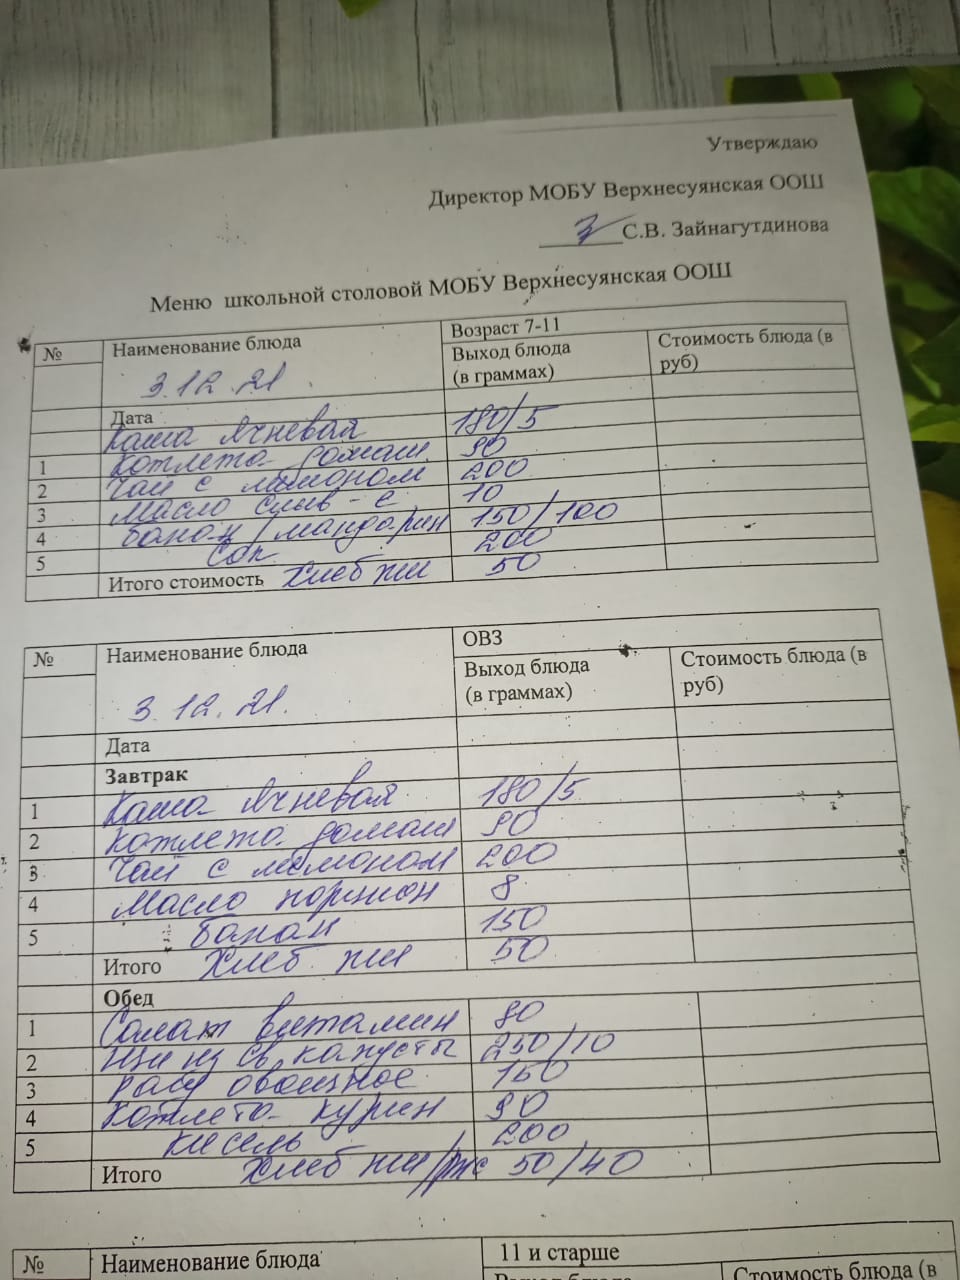 Утверждаю
Директор МОБУ Верхнесуянская ООШ
С.В. Зайнагутдинова
Меню школьной столовой МОБУ Верхнесуянская ООШ
№ Наименование блюда Возраст 7-11
Выход блюда (в граммах) Стоимость блюда (в руб)
3.12.21.
Дата
Каша ячневая 180/5
1 Котлета домаш 90
2 Чай с лимоном 200
3 Масло слив-е 10
4 банан/мандарин 150/100
5 Сок 200
Итого стоимость Хлеб пш 50
№ Наименование блюда ОВЗ
Выход блюда (в граммах) Стоимость блюда (в руб)
3.12.21.
Дата
Завтрак
1 Каша ячневая 180/5
2 Котлета домаш 90
3 Чай с лимоном 200
4 Масло порцион 8
5 банан 150
Итого Хлеб пш 50
Обед
1 Салат витамин 80
2 Щи из св капусты 250/10
3 рагу овощное 150
4 Котлета курин 90
5 кисель 200
Итого Хлеб пш/рж 50/40
№ Наименование блюда 11 и старше
Выход блюда Стоимость блюда (в